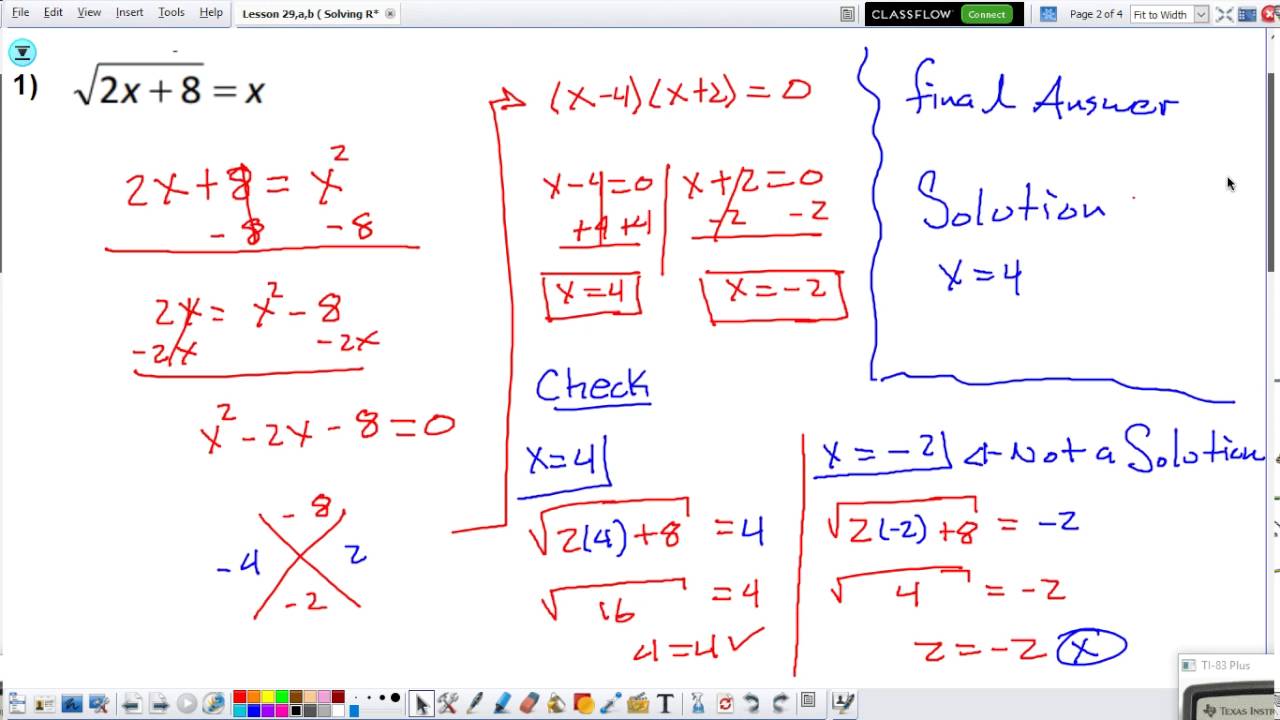 File Edit View Insert Tools Help Lesson 29,a,b ( Solving R* CLASSFLOW Connect Page 2 of 4 Fit to Width
1) √2x + 8 = x
2x + 8 = x²
- 8 - 8
2x = x² - 8
-2x - 2x
x² - 2x - 8 = 0
- 8
- 4 2
- 2
(x-4)(x+2) = 0
x-4=0 x+2=0
+4 +4 -2 -2
x=4 x=-2
Check
x=4
√2(4)+8 = 4
√16 = 4
4=4 ✓
x = -2 ← Not a Solution
√2(-2)+8 = -2
√4 = -2
2 = -2 x
final Answer
Solution
x = 4
TI-83 Plus
TEXAS INSTR